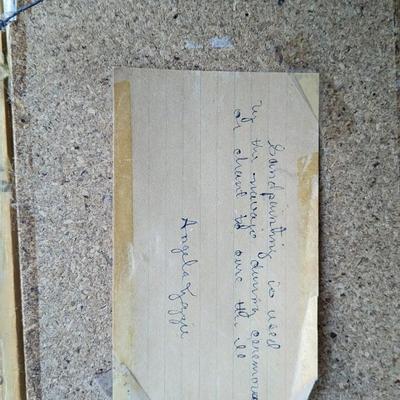 Sandpainting is used
by the navajo during ceremony
or chant to cure the ill
Angela Yazzie